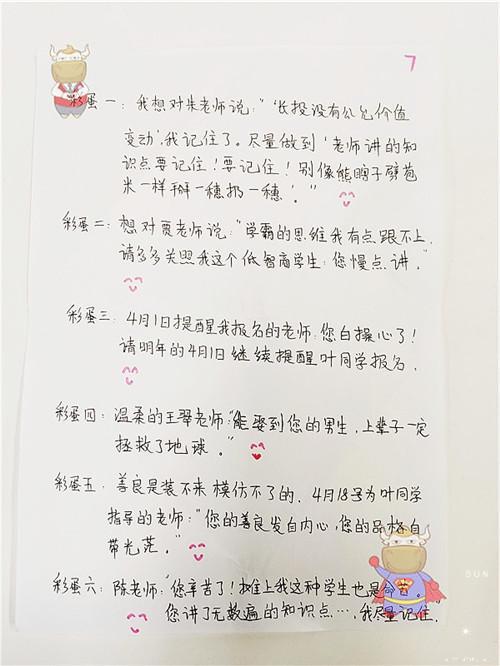 7
彩蛋一：我想对朱老师说："'长投没有公允价值
变动'，我记住了。尽量做到'老师讲的知
识点要记住！要记住！别像熊瞎子劈苞
米一样掰一穗扔一穗'。"
彩蛋二：想对贾老师说："学霸的思维我有点跟不上，
请多多关照我这个低智商学生；您慢点讲。"
彩蛋三：4月1日提醒我报名的老师：您白操心了！
请明年的4月1日继续提醒叶同学报名．
彩蛋四：温柔的王翠老师："能娶到您的男生，上辈子一定
拯救了地球。"
彩蛋五：善良是装不来模仿不了的．4月18号为叶同学
指导的老师："您的善良发自内心，您的品格自
带光茫。"
彩蛋六：陈老师："您辛苦了！摊上我这种学生也是命苦
您讲了无数遍的知识点…，我尽量记住．
SUN